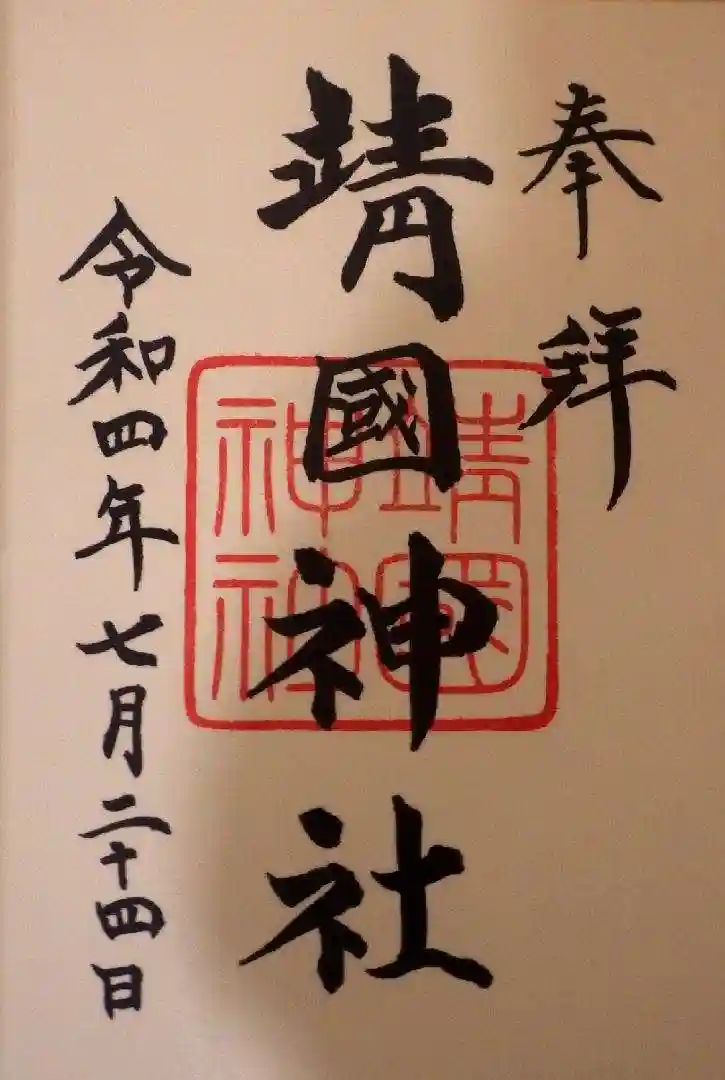 奉拜
靖國神社
靖國
神社
令和四年七月二十四日